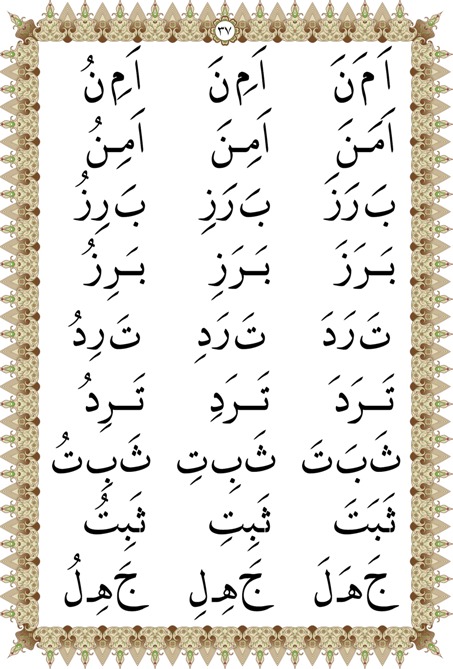 ٣٧
اَ مَ نَ اَ مِ نَ اَ مِ نُ
اَمَنَ اَمِنَ اَمِنُ
بَ رَ زَ بَ رَ زِ بَ رِ زُ
بَـرَزَ بَـرَزِ بَـرِزُ
تَ رَ دَ تَ رَ دِ تَ رِ دُ
تَــرَدَ تَــرَدِ تَــرِدُ
ثَ بَ تَ ثَ بِ تِ ثَ بِ تُ
ثَبَتَ ثَبِتِ ثَبِتُ
جَ هَـ لَ جَ هِـ لِ جَ هِـ لُ